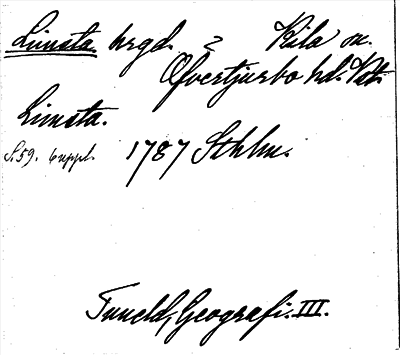 Limsta hrgd. ? Kila sn.
Öfvertjurbo hd. Vstm.
Limsta.
S. 59. 6 uppl. 1787 Sthlm.
Tuneld, Geografi. III.